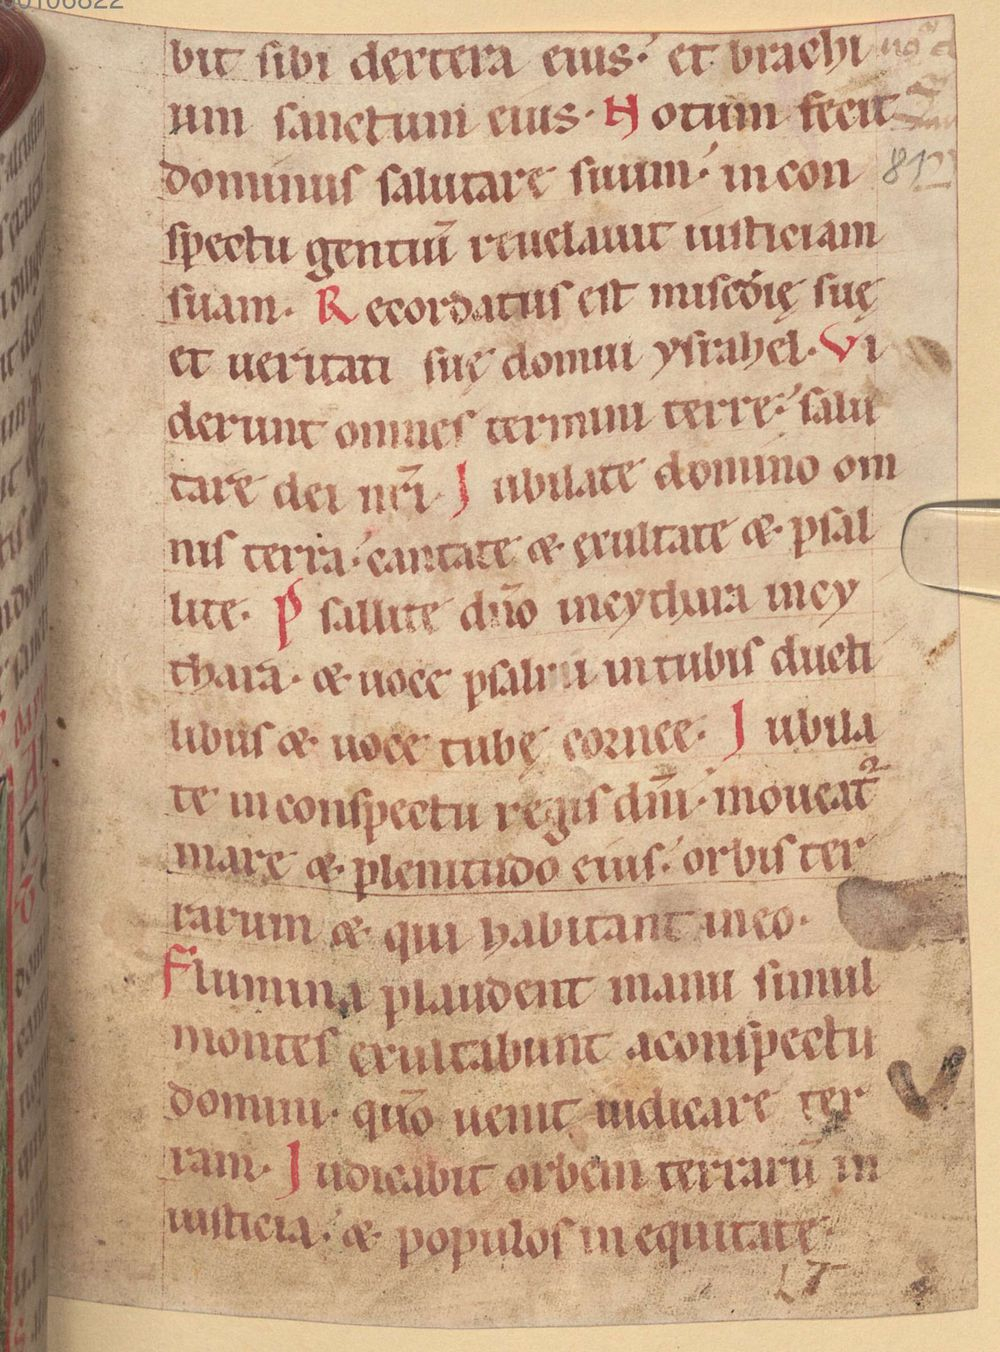 00106822
bit sibi dextera eius· et brachi
um sanctum eius· Notum fecit
dominus salutare suum· in con
spectu gentiū reuelauit iusticiam
suam· Recordatus est misc̄dię suę
et ueritati suę domui ysrahel· Vi
derunt omnes termini terre· salu
tare dei nr̄i· Iubilate domino om
nis terra· cantate & exultate & psal
lite· Psallite dn̄o incythara incy
thara· & uoce psalmi intubis ducti
libus & uoce tubę cornee· Iubila
te inconspectu regis dn̄i· moueat᷑
mare & plenitudo eius· orbis ter
rarum & qui habitant ineo·
Flumina plaudent manu simul
montes exultabunt aconspectu
domini· quō uenit iudicare ter
ram· Iudicabit orbem terrarū in
iusticia· & populos in equitate·